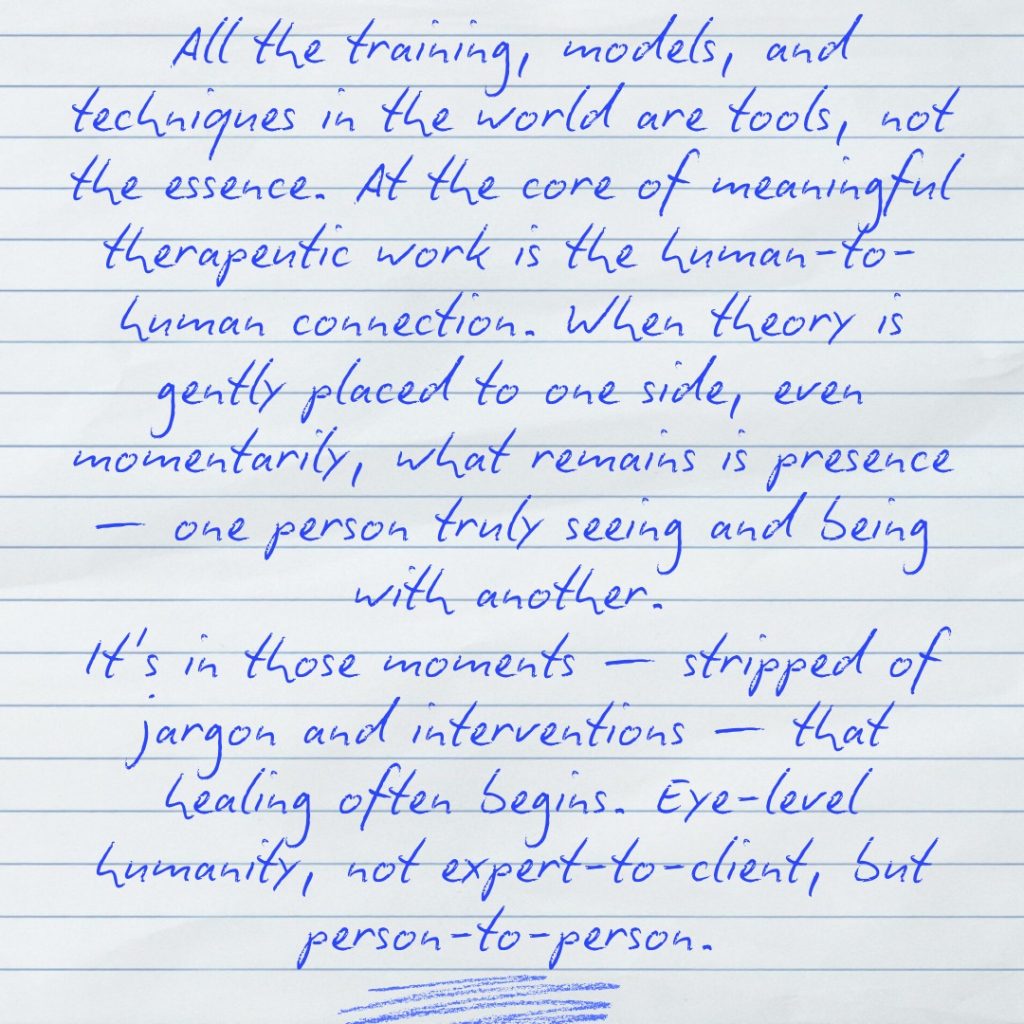 All the training, models, and
techniques in the world are tools, not
the essence. At the core of meaningful
therapeutic work is the human-to-
human connection. When theory is
gently placed to one side, even
momentarily, what remains is presence
— one person truly seeing and being
with another.
It's in those moments — stripped of
jargon and interventions — that
healing often begins. Eye-level
humanity, not expert-to-client, but
person-to-person.